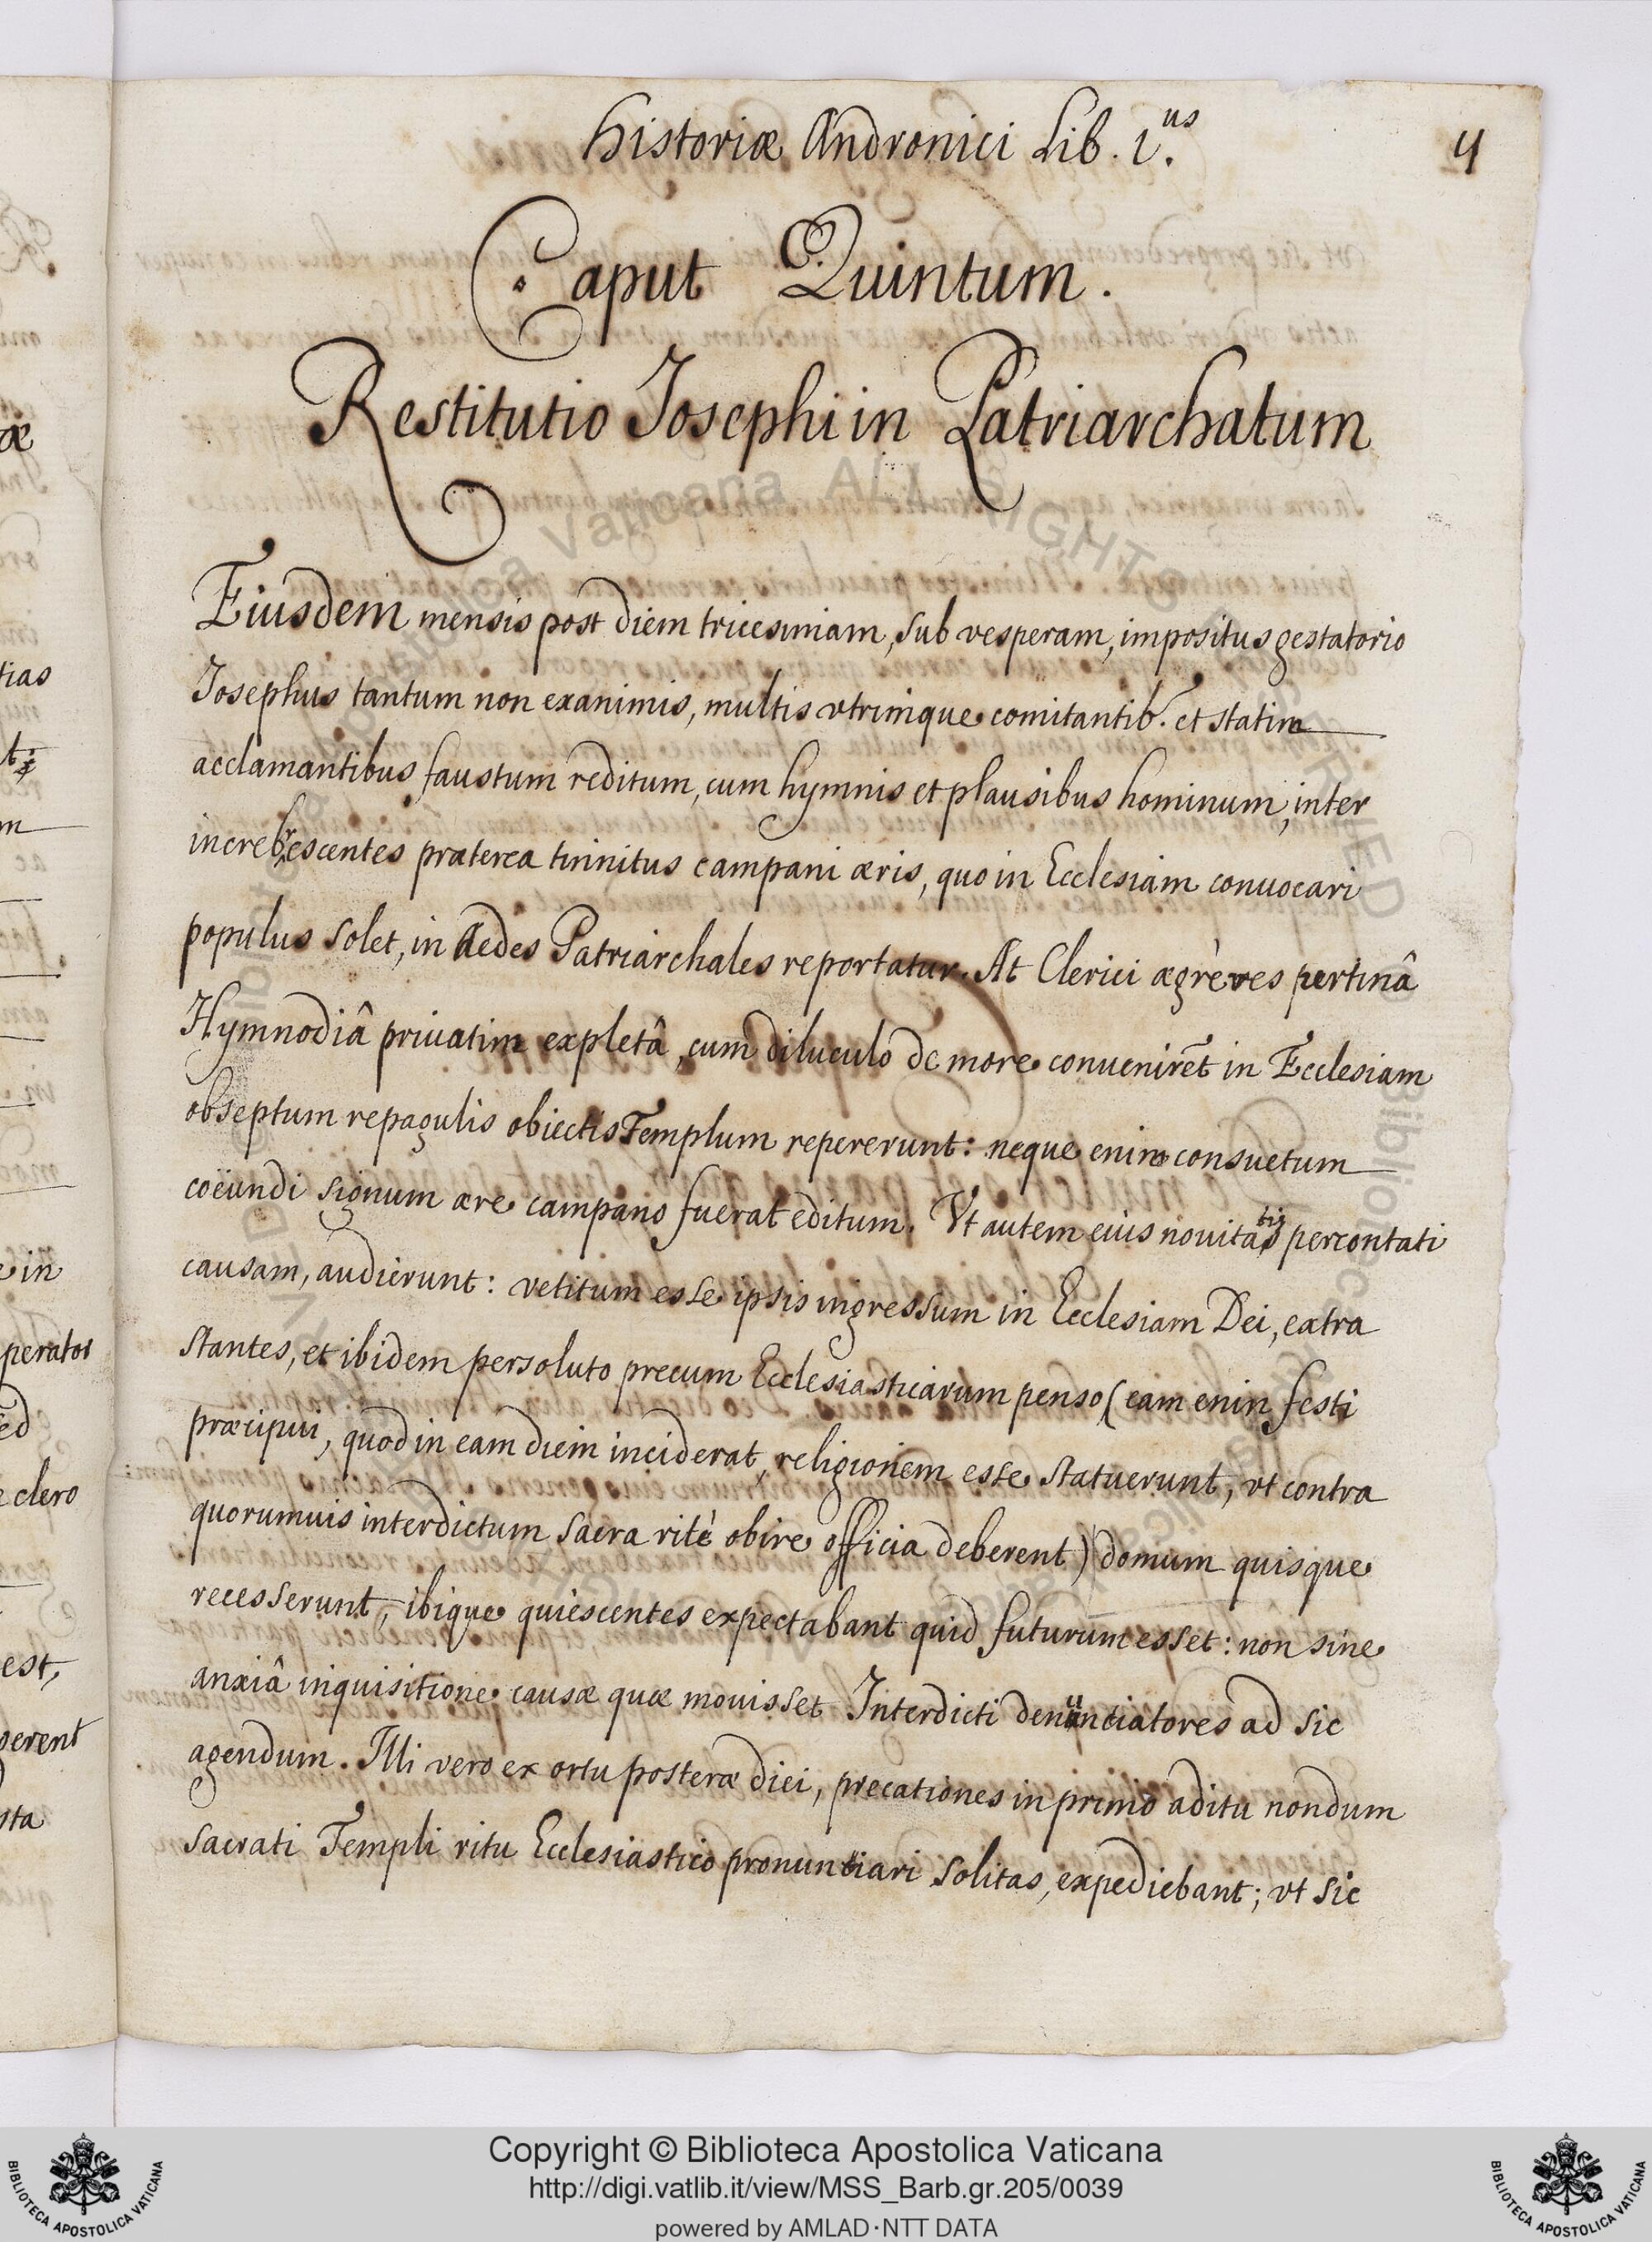 Historiæ Andronici Lib. 1.us
4
Caput Quintum.
Restitutio Josephi in Patriarchatum
Eiusdem mensis post diem tricesimam, sub vesperam, impositus gestatorio
Josephus tantum non exanimis, multis vtrimque comitantib. et statim
acclamantibus faustum reditum, cum hymnis et plausibus hominum, inter
increbrescentes præterea tinnitus campani æris, quo in Ecclesiam conuocari
populus solet, in Aedes Patriarchales reportatur. At Clerici ægrè res pertinâ
Hymnodiâ priuatim expletâ, cum diluculo de more conuenirēt in Ecclesiam
obseptum repagulis obiectis Templum repererunt: neque enim consuetum
coëundi signum ære campano fuerat editum. Vt autem eius nouitatis percontati
causam, audierunt: vetitum esse ipsis ingressum in Ecclesiam Dei, extra
stantes, et ibidem persoluto precum Ecclesiasticarum penso (eam enim festi
præcipui, quod in eam diem inciderat, religionem esse statuerunt, vt contra
quorumuis interdictum sacra ritè obire officia deberent) domum quisque
recesserunt, ibique quiescentes expectabant quid futurum esset: non sine
anxiâ inquisitione causæ quæ mouisset Interdicti denunciatores ad sic
agendum. Illi vero ex ortu posteræ diei, precationes in primo aditu nondum
sacrati Templi ritu Ecclesiastico pronuntiari solitas, expediebant; vt sic
æ
tias
m
e in
perator
ed
e clero
est,
gerent
sta
Copyright © Biblioteca Apostolica Vaticana
http://digi.vatlib.it/view/MSS_Barb.gr.205/0039
powered by AMLAD·NTT DATA
BIBLIOTECA APOSTOLICA VATICANA
BIBLIOTECA APOSTOLICA VATICANA